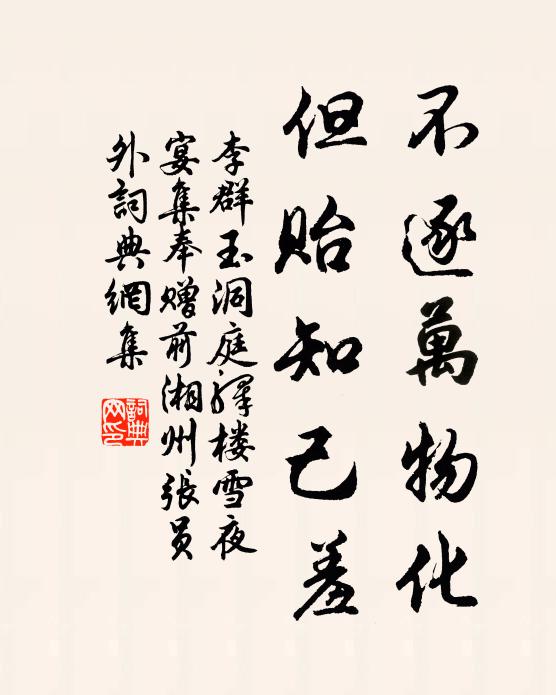 不逐萬物化
但貽知己羞
李群玉洞庭驛楼雪夜
宴集奉赠前湘州張员
外詞典網集
詞典網印